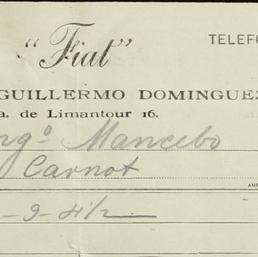 "Fiat"
TELEFO
GUILLERMO DOMINGUEZ
a. de Limantour 16.
ngº Mancebo
Carnot
-9-41/2